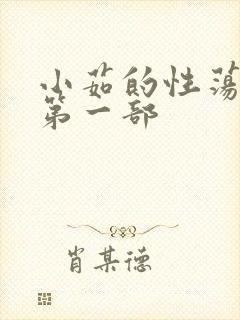 小茹的性荡
第一部
肖某德